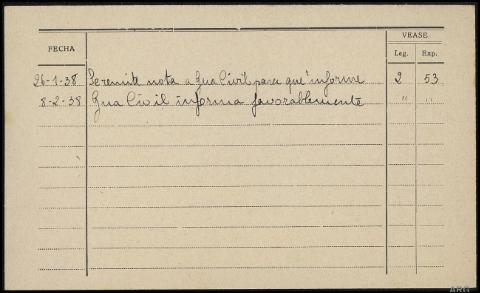 VEASE.
FECHA
Leg. Exp.
26-1-38 Se remite nota a Gua Civil para que informe 2 53
8-2-38 Gua Civil informa favorablemente " "